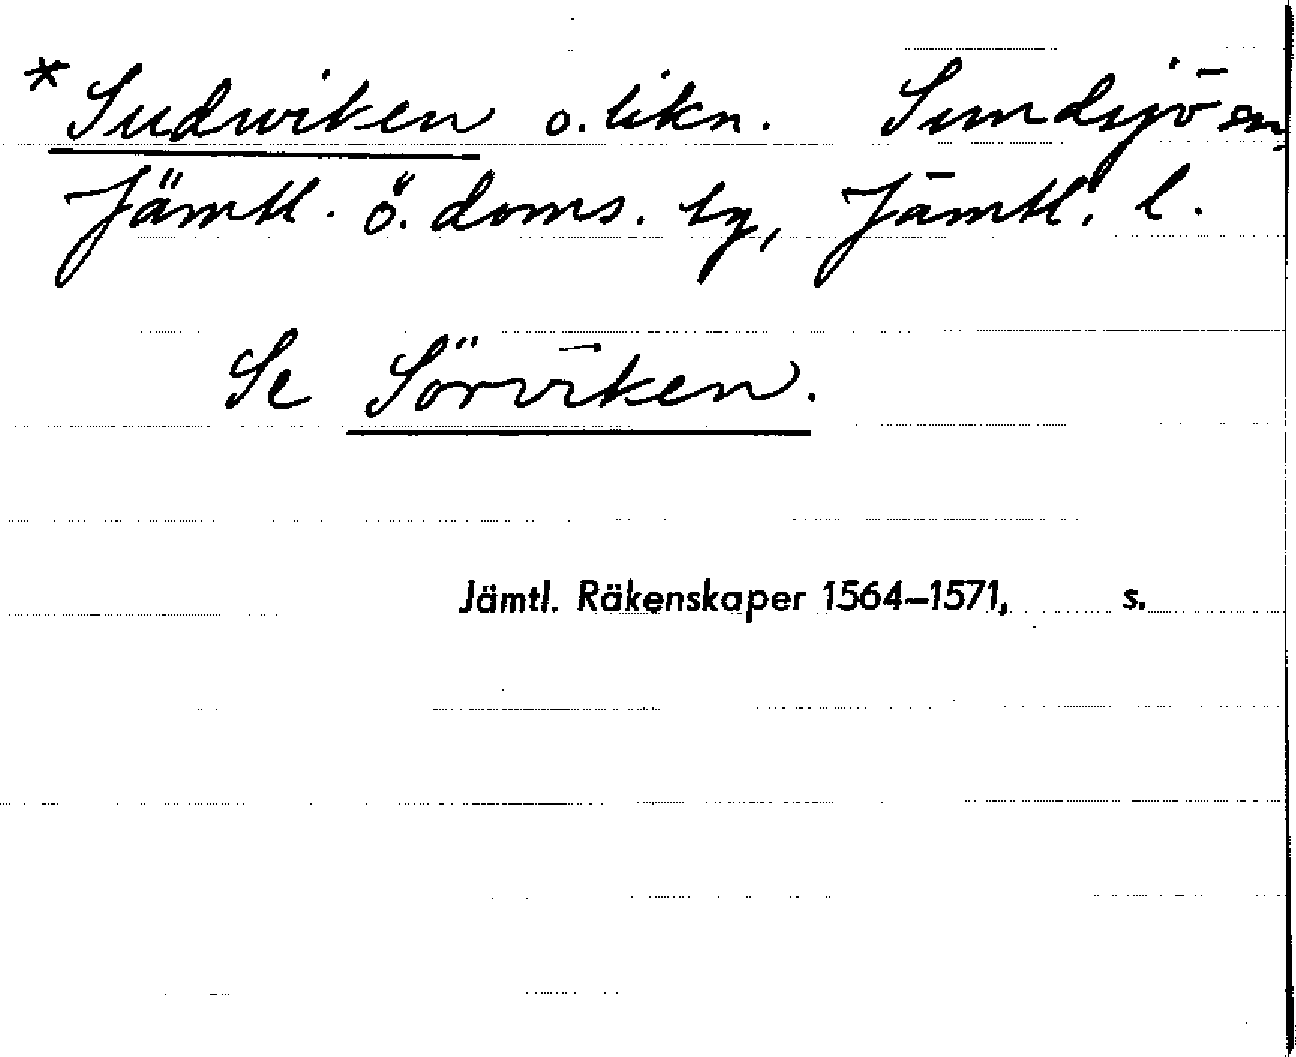 *Sudwiken o. likn. Sundsjö sn,
Jämtl. ö. doms. tg, Jämtl. l.
Se Sörviken.
Jämtl. Räkenskaper 1564–1571, s.